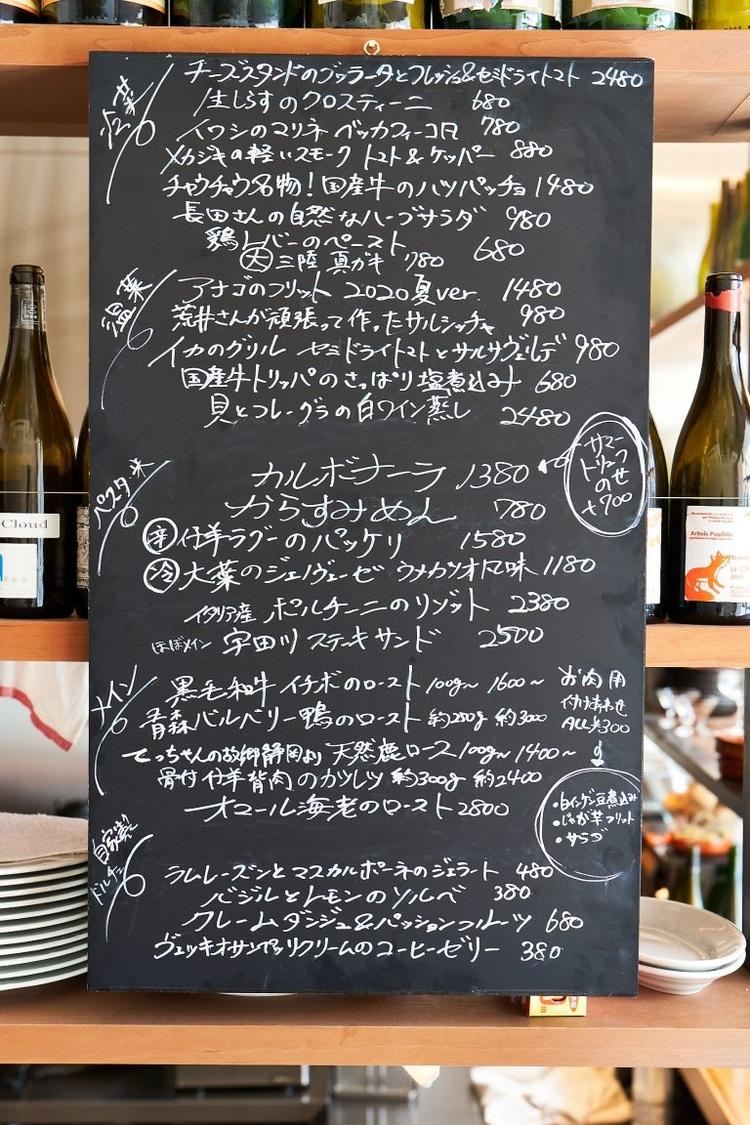 冷菜
チーズスタンドのブッラータとフレッシュ&セミドライトマト 2480
生しらすのクロスティーニ 680
イワシのマリネ ベッカフィーコ風 780
メカジキの軽いスモーク トマト&ケッパー 880
チャウチャウ名物!国産牛のハツパッチョ 1480
長田さんの自然なハーブサラダ 980
鶏レバーのペースト 680
大 三陸 真ガキ 780
温菜
アナゴのフリット 2020夏ver. 1480
荒井さんが頑張って作ったサルシッチャ 980
イカのグリル セミドライトマトとサルサヴェルデ 980
国産牛トリッパのさっぱり塩煮込み 680
貝とフレーグラの白ワイン蒸し 2480
パスタ・米
カルボナーラ 1380
サマー
トリュフ
のせ
+900
からすみめん 780
辛 仔羊ラグーのパッケリ 1580
冷 大葉のジェノヴェーゼ ウメカツオ風味 1180
イタリア産 ポルチーニのリゾット 2380
ほぼメイン 宇田川ステーキサンド 2500
メイン
黒毛和牛イチボのロースト 100g〜 1600〜
青森バルバリー鴨のロースト 約250g 約3000
てっちゃんの故郷静岡より 天然鹿ロース 100g〜 1400〜
骨付仔羊背肉のカツレツ 約300g 約2400
オマール海老のロースト 2800
お肉用
付け合わせ
ALL ¥300
・白インゲン豆煮込み
・じゃが芋フリット
・サラダ
自家製
ドルチェ
ラムレーズンとマスカルポーネのジェラート 480
バジルとレモンのソルベ 380
クレームダンジュ&パッションフルーツ 680
ヴェッキオサンペッリクリームのコーヒーゼリー 380
Cloud
Arbois Pupillin